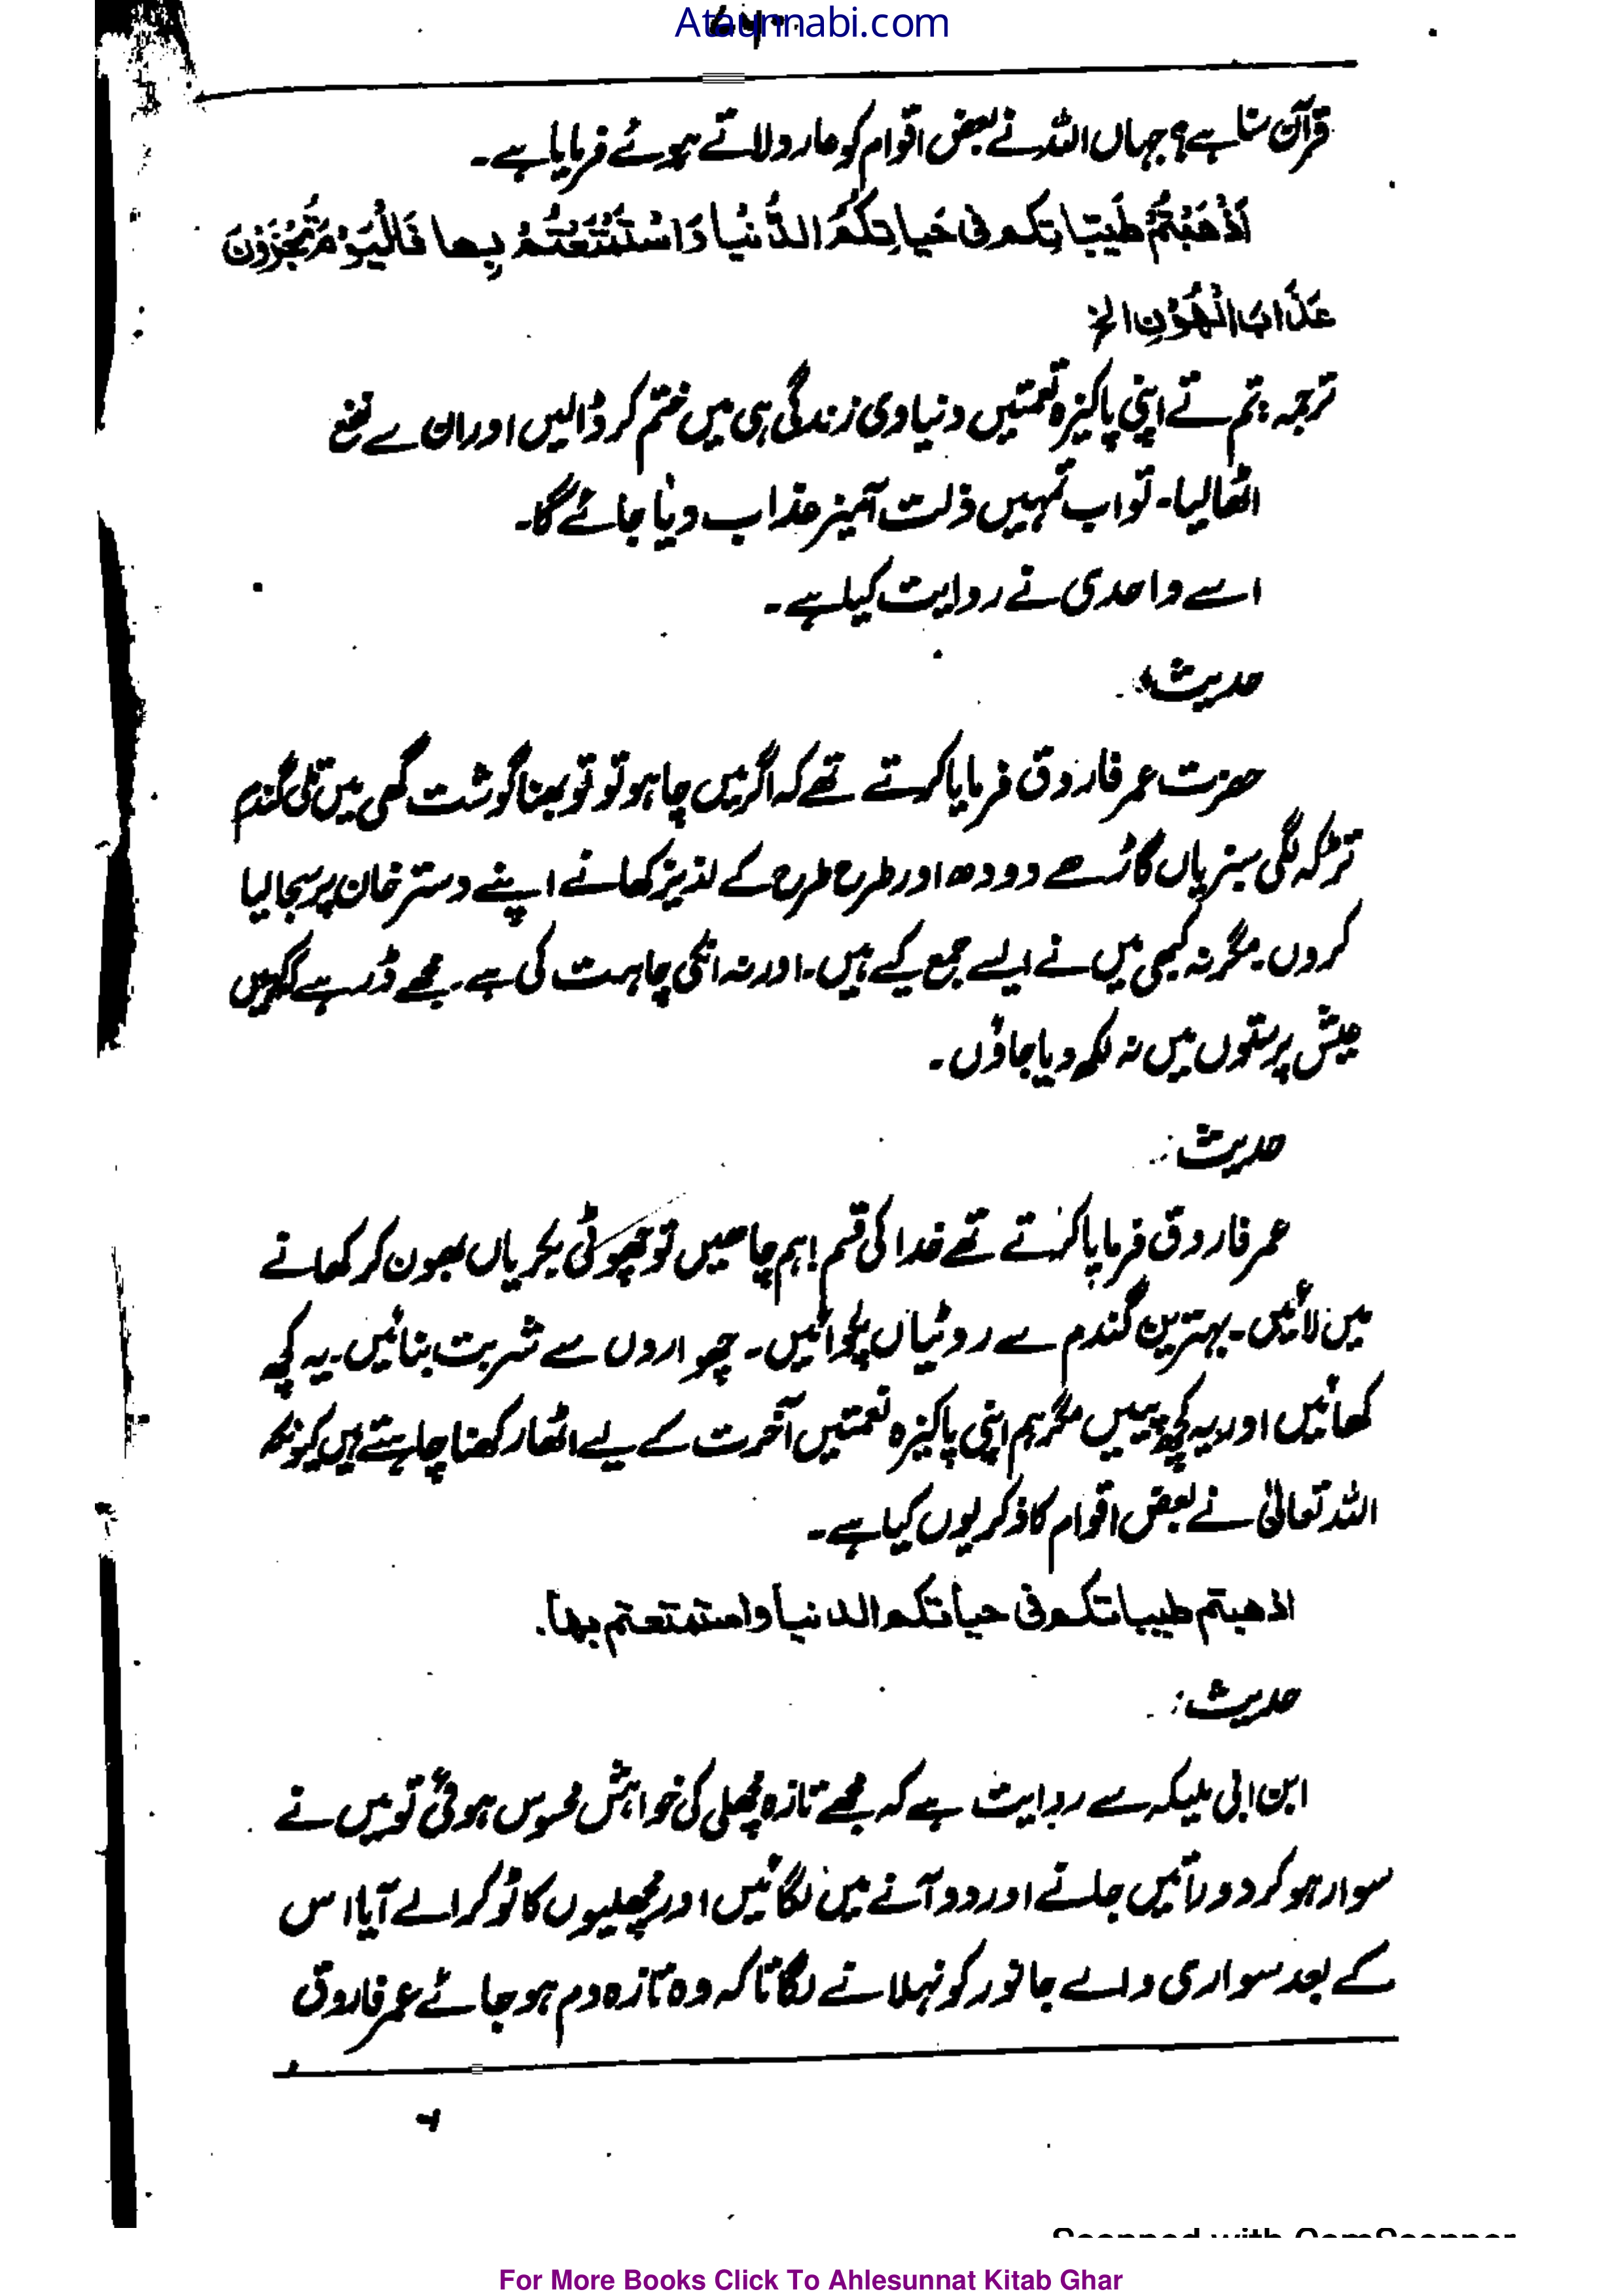 Ataunnabi.com
قرآن سنا ہے؟ جہاں اللہ نے بعض اقوام کو عار دلاتے ہوئے فرمایا ہے۔
اَذْهَبْتُمْ طَیِّبَاتِكُم فی حَیاتِكُمُ الدُّنْیا وَاسْتَمْتَعْتُمْ بِها فَالْیَوْمَ تُجْزَوْنَ
عَذَابَ الْهُوْنِ الخ
ترجمہ: تم نے اپنی پاکیزہ نعمتیں دنیاوی زندگی ہی میں ختم کر ڈالیں اور ان سے نفع
اٹھا لیا۔ تو اب تمہیں ذلت آمیز عذاب دیا جائے گا۔
اسے واحدی نے روایت کیا ہے۔
حدیث:
حضرت عمر فاروق فرمایا کرتے تھے کہ اگر میں چاہو تو تو بھنا گوشت گھی میں تلی گندم
تڑکہ لگی سبزیاں گاڑھے دودھ اور طرح طرح کے لذیز کھانے اپنے دسترخان پر سجا لیا
کروں۔ مگر نہ کبھی میں نے ایسے جمع کیے ہیں۔ اور نہ انکی چاہت کی ہے۔ مجھے ڈر ہے کہ کہیں
عیش پرستوں میں نہ لکھ دیا جاؤں۔
حدیث:
عمر فاروق فرمایا کرتے تھے خدا کی قسم! ہم چاھیں تو چھوٹی بکریاں بھون کر کھانے
میں لائیں۔ بہترین گندم سے روٹیاں پکوائیں۔ چھواروں سے شربت بنائیں۔ یہ کچھ
کھائیں اور یہ کچھ پییں مگر ہم اپنی پاکیزہ نعمتیں آخرت کے لیے اٹھا رکھنا چاہتے ہیں کیونکہ
اللہ تعالیٰ نے بعض اقوام کا ذکر یوں کیا ہے۔
اذهبتم طیباتكم فی حیاتكم الدنیا واستمتعتم بها.
حدیث:
ابن ابی ملیکہ سے روایت ہے کہ مجھے تازہ مچھلی کی خواہش محسوس ہوئی تو میں نے
سوار ہو کر دو راتیں جانے اور دو آنے میں لگائیں اور مچھلیوں کا ٹوکرا لے آیا اس
کے بعد سواری والے جانور کو نہلانے لگا تاکہ وہ تازہ دم ہو جائے عمر فاروق
Scanned with CamScanner
For More Books Click To Ahlesunnat Kitab Ghar